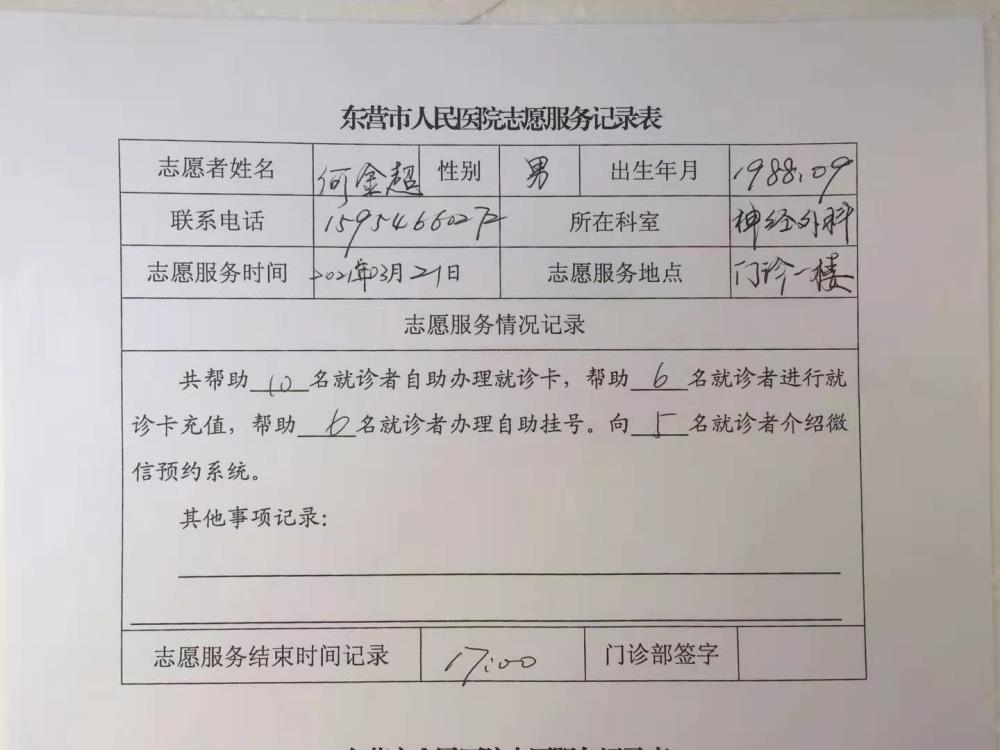 东营市人民医院志愿服务记录表
志愿者姓名 何金超 性别 男 出生年月 1988.09
联系电话 所在科室 神经外科
志愿服务时间 2021年03月21日 志愿服务地点 门诊一楼
志愿服务情况记录
共帮助10名就诊者自助办理就诊卡，帮助6名就诊者进行就
诊卡充值，帮助6名就诊者办理自助挂号。向5名就诊者介绍微
信预约系统。
其他事项记录：
志愿服务结束时间记录 17:00 门诊部签字